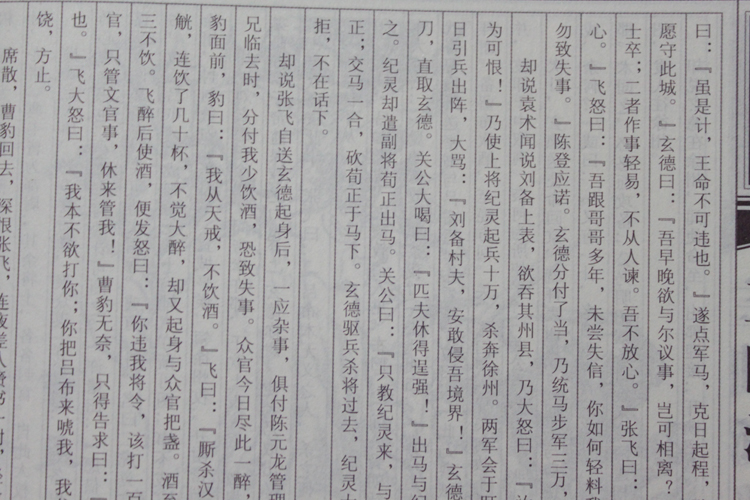 曰：『虽是计，王命不可违也。』遂点军马，克日起程，
愿守此城。』玄德曰：『吾早晚欲与尔议事，岂可相离？
士卒；二者作事轻易，不从人谏。吾不放心。』张飞曰：
心。』飞怒曰：『吾跟哥哥多年，未尝失信，你如何轻料
勿致失事。』陈登应诺。玄德分付了当，乃统马步军三万，
却说袁术闻说刘备上表，欲吞其州县，乃大怒曰：『
为可恨！』乃使上将纪灵起兵十万，杀奔徐州。两军会于
日引兵出阵，大骂：『刘备村夫，安敢侵吾境界！』玄德
刀，直取玄德。关公大喝曰：『匹夫休得逞强！』出马与纪
之。纪灵却遣副将荀正出马。关公曰：『只教纪灵来，与
正；交马一合，砍荀正于马下。玄德驱兵杀将过去，纪灵大
拒，不在话下。
却说张飞自送玄德起身后，一应杂事，俱付陈元龙管理
兄临去时，分付我少饮酒，恐致失事。众官今日尽此一醉，
豹面前，豹曰：『我从天戒，不饮酒。』飞曰：『厮杀汉
觥，连饮了几十杯，不觉大醉，却又起身与众官把盏。酒至
三不饮。飞醉后使酒，便发怒曰：『你违我将令，该打一百
官，只管文官事，休来管我！』曹豹无奈，只得告求曰：『
也。』飞大怒曰：『我本不欲打你；你把吕布来唬我，我
饶，方止。
席散，曹豹回去，深恨张飞，连夜差人